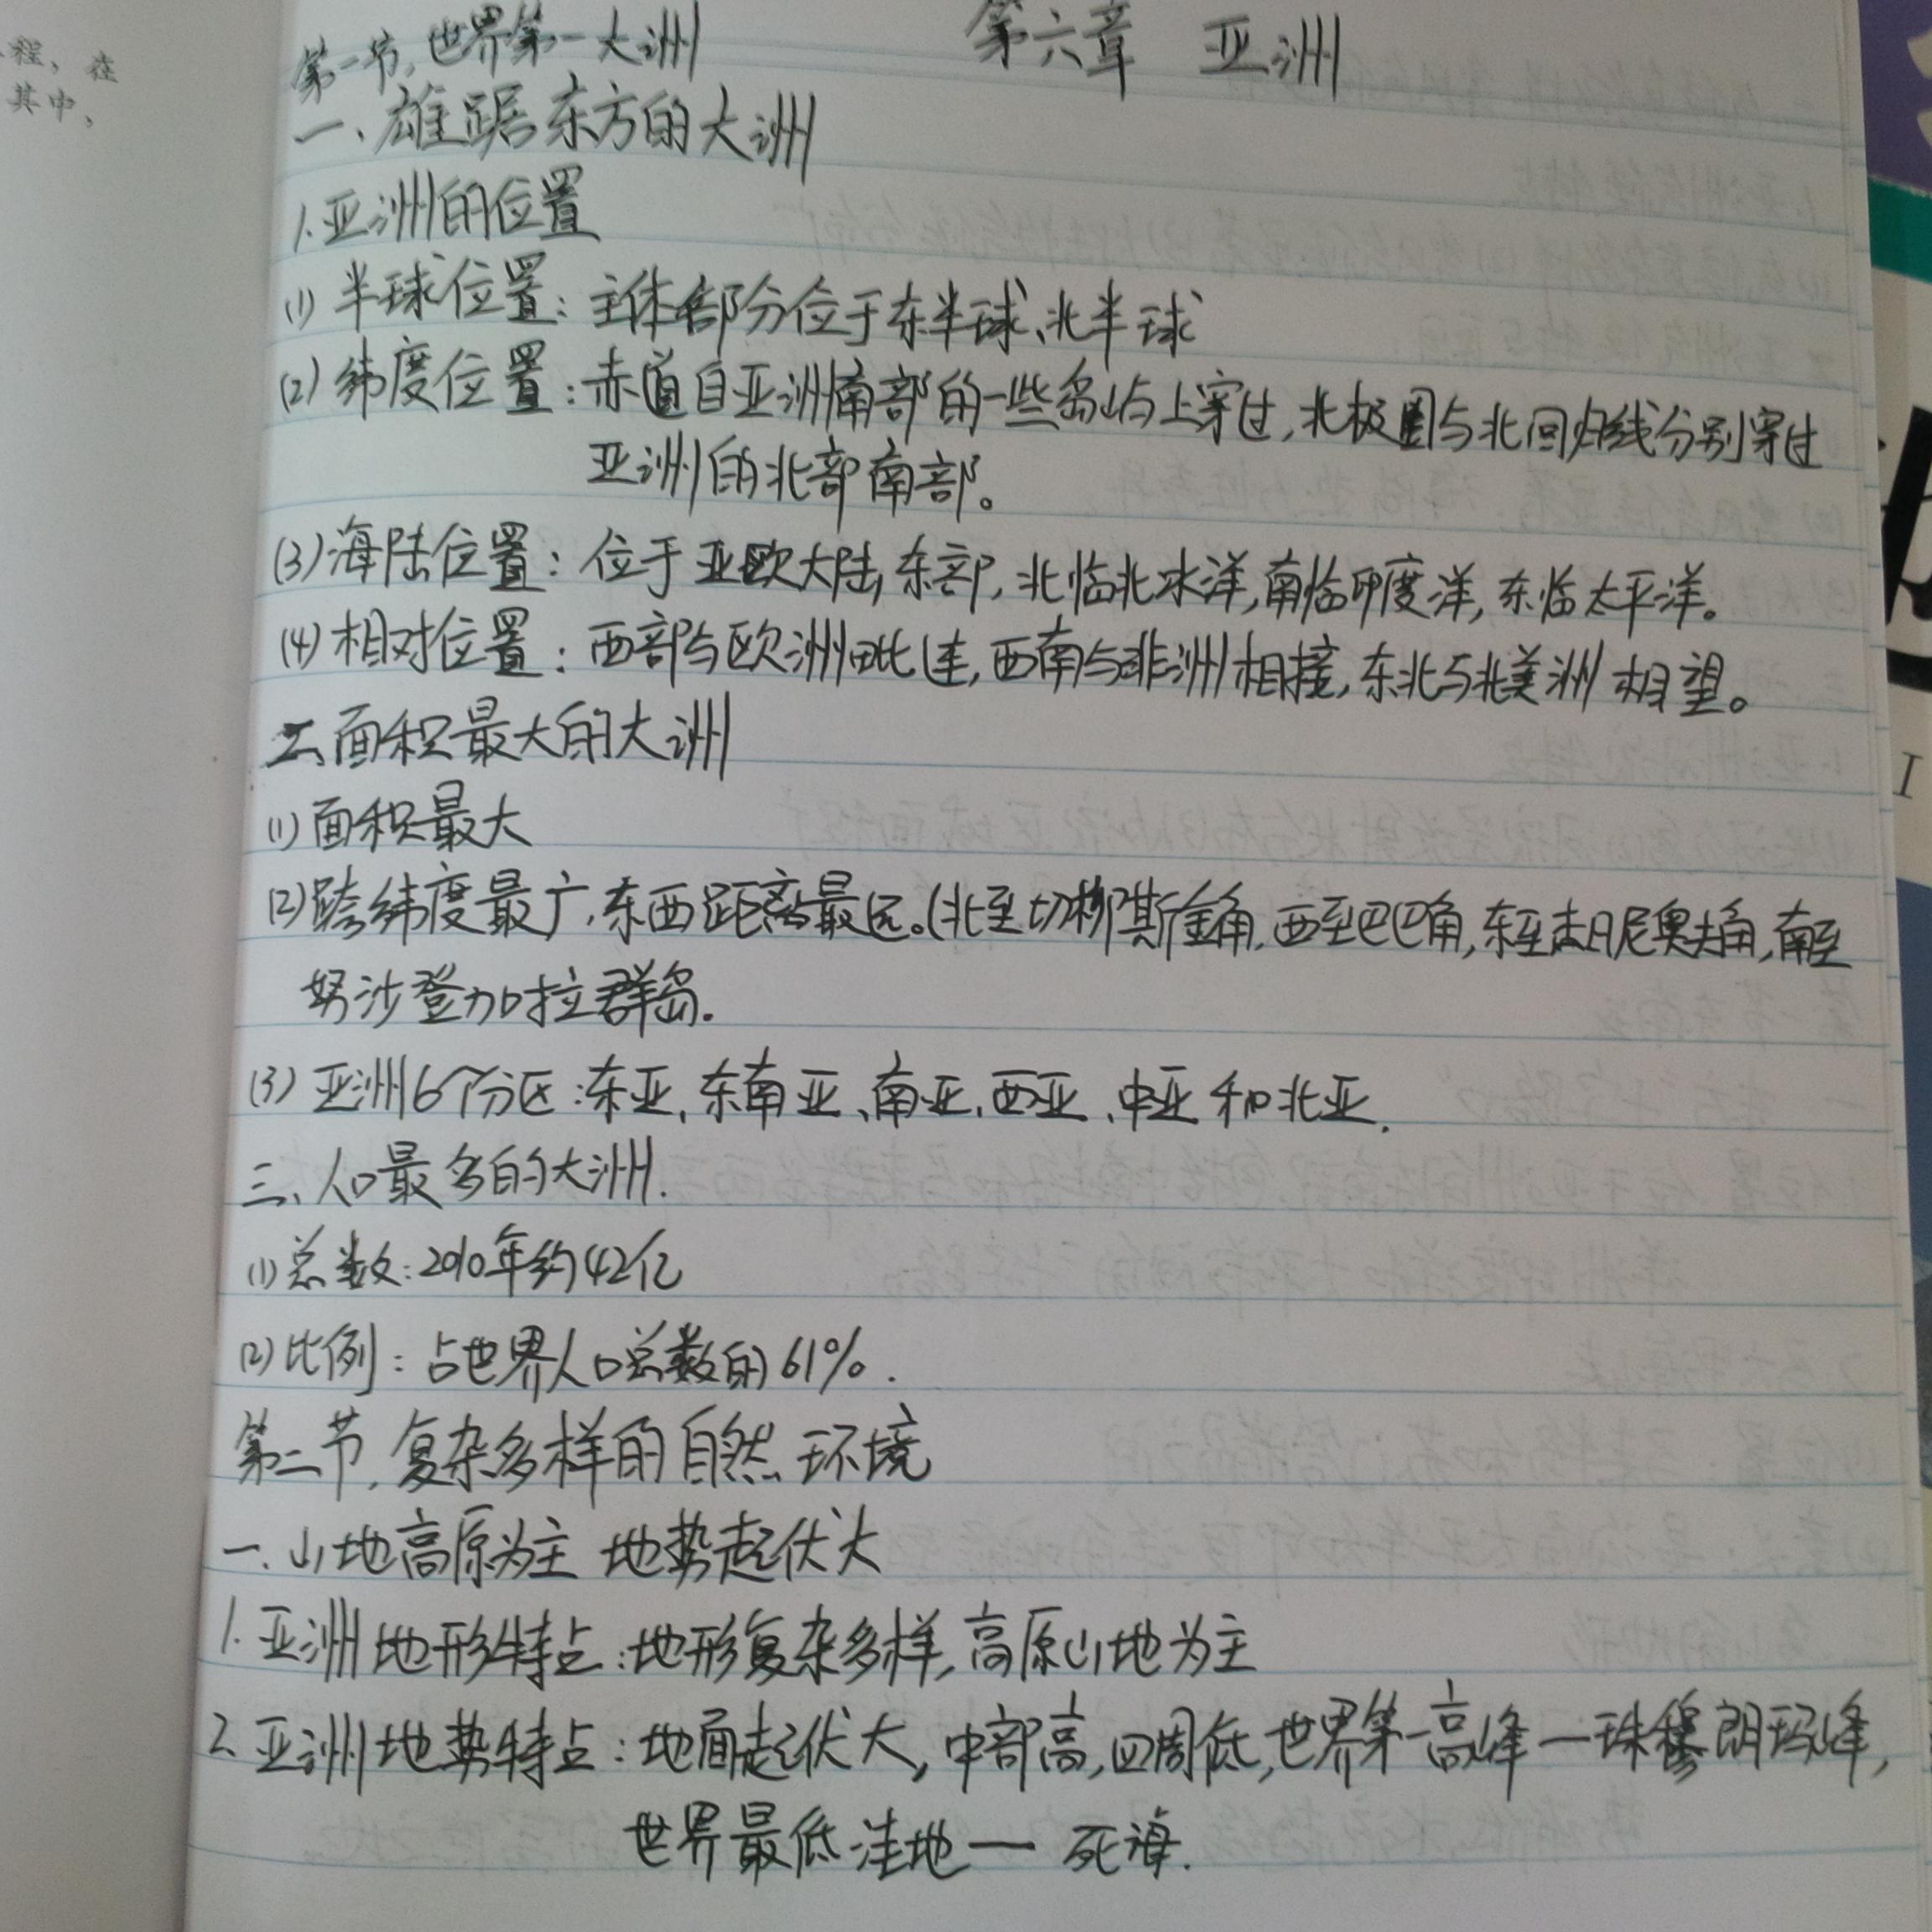 程，在
其中，
第六章 亚洲
第一节，世界第一大洲
一、雄踞东方的大洲
1.亚洲的位置
(1)半球位置：主体部分位于东半球、北半球
(2)纬度位置：赤道自亚洲南部的一些岛屿上穿过，北极圈与北回归线分别穿过
亚洲的北部南部。
(3)海陆位置：位于亚欧大陆东部，北临北冰洋，南临印度洋，东临太平洋。
(4)相对位置：西部与欧洲毗连，西南与非洲相接，东北与北美洲相望。
二、面积最大的大洲
(1)面积最大
(2)跨纬度最广，东西距离最远。(北至切柳斯金角，西至巴巴角，东至杰日尼奥夫角，南至
努沙登加拉群岛.
(3)亚洲6个分区：东亚、东南亚、南亚、西亚、中亚和北亚.
三、人口最多的大洲.
(1)总数：2010年约42亿
(2)比例：占世界人口总数的61%.
第二节，复杂多样的自然环境
一.山地高原为主 地势起伏大
1.亚洲地形特点：地形复杂多样，高原山地为主
2.亚洲地势特点：地面起伏大，中部高，四周低，世界第一高峰—珠穆朗玛峰，
世界最低洼地—死海.